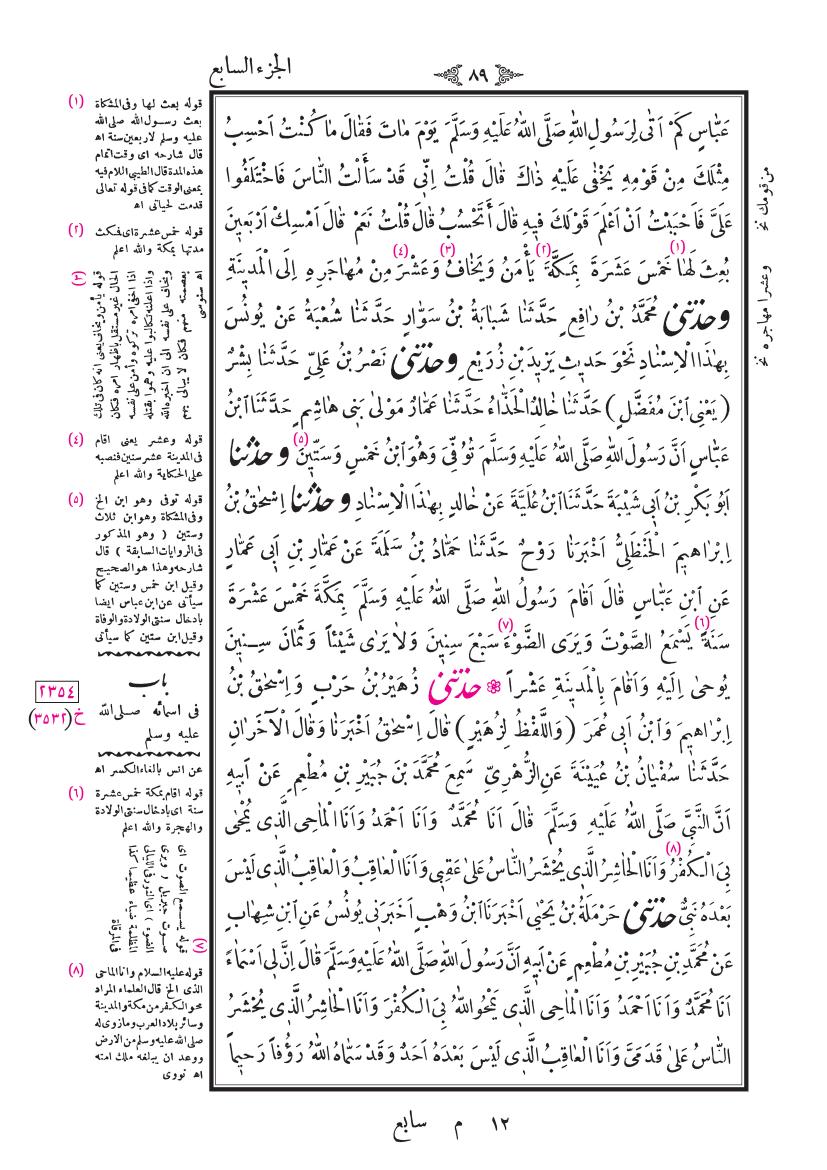 الجزء السابع
٨٩
عَبَّاسٍ كَمْ اَتٰى لِرَسُولِ اللّٰهِ صَلَّى اللّٰهُ عَلَيْهِ وَسَلَّمَ يَوْمَ مٰاتَ فَقٰالَ مٰا كُنْتُ اَحْسِبُ
مِثْلَكَ مِنْ قَوْمِهِ يَخْفٰى عَلَيْهِ ذٰاكَ قٰالَ قُلْتُ اِنّى قَدْ سَأَلْتُ النّٰاسَ فَاخْتَلَفُوا
عَلَىَّ فَاَحْبَبْتُ اَنْ اَعْلَمَ قَوْلَكَ فيهِ قٰالَ أَتَحْسُبُ قٰالَ قُلْتُ نَعَمْ قٰالَ اَمْسِكْ اَرْبَعينَ
بُعِثَ لَهٰا (١) خَمْسَ عَشْرَةَ بِمَكَّةَ (٢) يَأْمَنُ وَيَخٰافُ (٣) وَعَشْرَ (٤) مِنْ مُهٰاجَرِهِ اِلَى الْمَدينَةِ
وحَدَّثَنى مُحَمَّدُ بْنُ رٰافِعٍ حَدَّثَنٰا شَبٰابَةُ بْنُ سَوّٰارٍ حَدَّثَنٰا شُعْبَةُ عَنْ يُونُسَ
بِهٰذَا الْاِسْنٰادِ نَحْوَ حَديثِ يَزيدَ بْنِ زُرَيْعٍ وحَدَّثَنى نَصْرُ بْنُ عَلِىٍّ حَدَّثَنٰا بِشْرٌ
( يَعْنِى ابْنَ مُفَضَّلٍ ) حَدَّثَنٰا خٰالِدٌ الْحَذّٰاءُ حَدَّثَنٰا عَمّٰارٌ مَوْلىٰ بَنى هٰاشِمٍ حَدَّثَنَا ابْنُ
عَبّٰاسٍ اَنَّ رَسُولَ اللّٰهِ صَلَّى اللّٰهُ عَلَيْهِ وَسَلَّمَ تُوُفِّىَ وَهُوَ ابْنُ خَمْسٍ وَسِتّينَ (٥) وحَدَّثَنا
اَبُو بَكْرِ بْنُ اَبى شَيْبَةَ حَدَّثَنَا ابْنُ عُلَيَّةَ عَنْ خٰالِدٍ بِهٰذَا الْاِسْنٰادِ وحَدَّثَنا اِسْحٰقُ بْنُ
اِبْرٰاهيمَ الْحَنْظَلِىُّ اَخْبَرَنٰا رَوْحٌ حَدَّثَنٰا حَمّٰادُ بْنُ سَلَمَةَ عَنْ عَمّٰارِ بْنِ اَبى عَمّٰارٍ
عَنِ ابْنِ عَبّٰاسٍ قٰالَ اَقٰامَ رَسُولُ اللّٰهِ صَلَّى اللّٰهُ عَلَيْهِ وَسَلَّمَ بِمَكَّةَ خَمْسَ عَشْرَةَ
سَنَةً (٦) يَسْمَعُ الصَّوْتَ وَيَرَى الضَّوْءَ (٧) سَبْعَ سِنينَ وَلاٰ يَرٰى شَيْئاً وَثَمٰانَ سِنينَ
يُوحىٰ اِلَيْهِ وَاَقٰامَ بِالْمَدينَةِ عَشْراً ❀ حَدَّثَنى زُهَيْرُ بْنُ حَرْبٍ وَاِسْحٰقُ بْنُ
اِبْرٰاهيمَ وَابْنُ اَبى عُمَرَ ( وَاللَّفْظُ لِزُهَيْرٍ ) قٰالَ اِسْحٰقُ اَخْبَرَنٰا وَقٰالَ الْآخَرٰانِ
حَدَّثَنٰا سُفْيٰانُ بْنُ عُيَيْنَةَ عَنِ الزُّهْرِىِّ سَمِعَ مُحَمَّدَ بْنَ جُبَيْرِ بْنِ مُطْعِمٍ عَنْ اَبيهِ
اَنَّ النَّبِىَّ صَلَّى اللّٰهُ عَلَيْهِ وَسَلَّمَ قٰالَ اَنَا مُحَمَّدٌ وَاَنَا اَحْمَدُ وَاَنَا الْمٰاحِى الَّذى يُمْحٰى
بِىَ الْكُفْرُ (٨) وَاَنَا الْحٰاشِرُ الَّذى يُحْشَرُ النّٰاسُ عَلىٰ عَقِبى وَاَنَا الْعٰاقِبُ وَالْعٰاقِبُ الَّذى لَيْسَ
بَعْدَهُ نَبِىٌّ حَدَّثَنى حَرْمَلَةُ بْنُ يَحْيٰى اَخْبَرَنَا ابْنُ وَهْبٍ اَخْبَرَنى يُونُسُ عَنِ ابْنِ شِهٰابٍ
عَنْ مُحَمَّدِ بْنِ جُبَيْرِ بْنِ مُطْعِمٍ عَنْ اَبيهِ اَنَّ رَسُولَ اللّٰهِ صَلَّى اللّٰهُ عَلَيْهِ وَسَلَّمَ قٰالَ اِنَّ لى اَسْمٰاءً
اَنَا مُحَمَّدٌ وَاَنَا اَحْمَدُ وَاَنَا الْمٰاحِى الَّذى يَمْحُو اللّٰهُ بِىَ الْكُفْرَ وَاَنَا الْحٰاشِرُ الَّذى يُحْشَرُ
النّٰاسُ عَلىٰ قَدَمَىَّ وَاَنَا الْعٰاقِبُ الَّذى لَيْسَ بَعْدَهُ اَحَدٌ وَقَدْ سَمّٰاهُ اللّٰهُ رَؤُفاً رَحيماً
من قومك نخ
وعشرا مهاجره نخ
(١) قوله بعث لها وفى المشكاة
بعث رسول الله صلى الله
عليه وسلم لاربعين سنة اه
قال شارحه اى وقت اتمام
هذه المدة قال الطيبى اللام فيه
بمعنى الوقت كما فى قوله تعالى
قدمت لحياتى اه
(٢) قوله خمس عشرة اى فمكث
مدتها بمكة والله اعلم
(٣) قوله يأمن ويخاف يعنى انه كان فى تلك
الحال غير مستقل باظهار امره فكان
اذا اخفى امره تركوه وأمن على نفسه
واذا اعلنه تكالبوا عليه وهموا بقتله
ويخاف على نفسه الى ان اخبره الله
بعصمته منهم فكان لا يبالى بهم
اه سنوسى
(٤) قوله وعشر يعنى اقام
فى المدينة عشر سنين فنصبه
على الحكاية والله اعلم
(٥) قوله توفى وهو ابن الخ
وفى المشكاة وهو ابن ثلاث
وستين ( وهو المذكور
فى الروايات السابقة ) قال
شارحه وهذا هو الصحيح
وقيل ابن خمس وستين كما
سيأتى عن ابن عباس ايضا
بادخال سنتى الولادة والوفاة
وقيل ابن ستين كما سيأتى
باب
٢٣٥٤
فى اسمائه صلى الله
خ(٣٥٣٢)
عليه وسلم
عن انس بالغاء الكسر اه
(٦) قوله اقام بمكة خمس عشرة
سنة اى بادخال سنتى الولادة
والهجرة والله اعلم
(٧) قوله يسمع الصوت اى
صوت جبريل ( ويرى
الضوء ) اى النور فى الليالى
المظلمة ضياء عظيما كذا
فى المرقاة
(٨) قوله عليه السلام وانا الماحى
الذى الخ قال العلماء المراد
محو الكفر من مكة والمدينة
وسائر بلاد العرب وما زوى له
صلى الله عليه وسلم من الارض
ووعد ان يبلغه ملك امته
اه نووى
١٢ م سابع